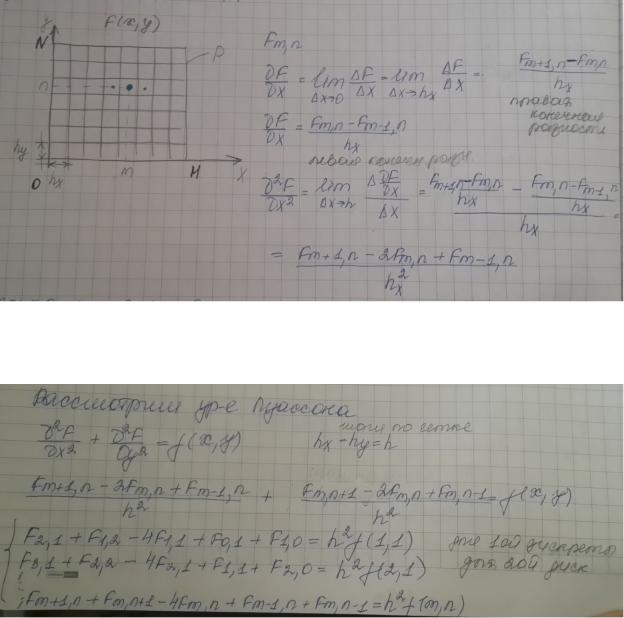 F(x,y)
y
N
D
n
hy
O
hx
m
M
X
Fm,n
∂F/∂x = lim Δx→0 ΔF/Δx = lim Δx→hx ΔF/Δx = (Fm+1,n − Fm,n)/hx
правая
конечная
разность
∂F/∂x = (Fm,n − Fm-1,n)/hx
левая конечн разн.
∂²F/∂x² = lim Δx→h (Δ ∂F/∂x)/Δx = ((Fm+1,n − Fm,n)/hx − (Fm,n − Fm-1,n)/hx)/hx
= (Fm+1,n − 2Fm,n + Fm-1,n)/hx²
Рассмотрим ур-е Пуассона
∂²F/∂x² + ∂²F/∂y² = f(x,y)
шаги по сетке
hx - hy = h
(Fm+1,n − 2Fm,n + Fm-1,n)/h² + (Fm,n+1 − 2Fm,n + Fm,n-1)/h² = f(x,y)
F2,1 + F1,2 − 4F1,1 + F0,1 + F1,0 = h²f(1,1) для 1ой дискреты
F3,1 + F2,2 − 4F2,1 + F1,1 + F2,0 = h²f(2,1) для 2ой диск
Fm+1,n + Fm,n+1 − 4Fm,n + Fm-1,n + Fm,n-1 = h²f(m,n)